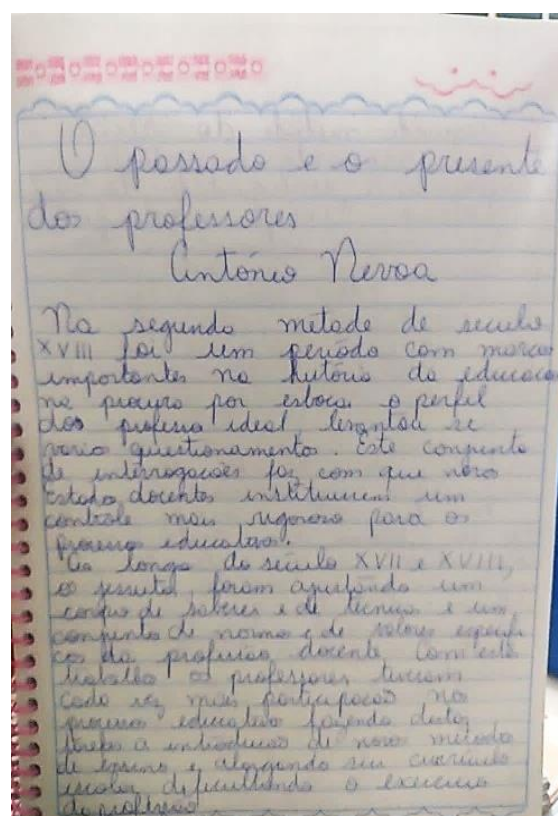 O passado e o presente
dos professores
António Nevoa
Na segunda metade de seculo
XVIII foi um período com marcos
importantes na história da educacao
na procura por esboca o perfil
dos professo ideal, levantou se
varios questionamentos. Este conjunto
de interrogacoes faz com que novo
Estado docentes instituicem um
controle mais rugoroso para os
processo educativo.
Ao longo do século XVII e XVIII,
os jesuitas, foram ajustando um
corpo de saberes e de tecnicas e um
conjunto de normas e de valores especifi
cos da profissão docente. Com este
trabalho os professores tiveram
cada vez mais participacao no
processo educativo fazendo
a introducao de novo metodo
de ensino e alargando seu curriculo
escolar dificultando o exercicio
da profissão